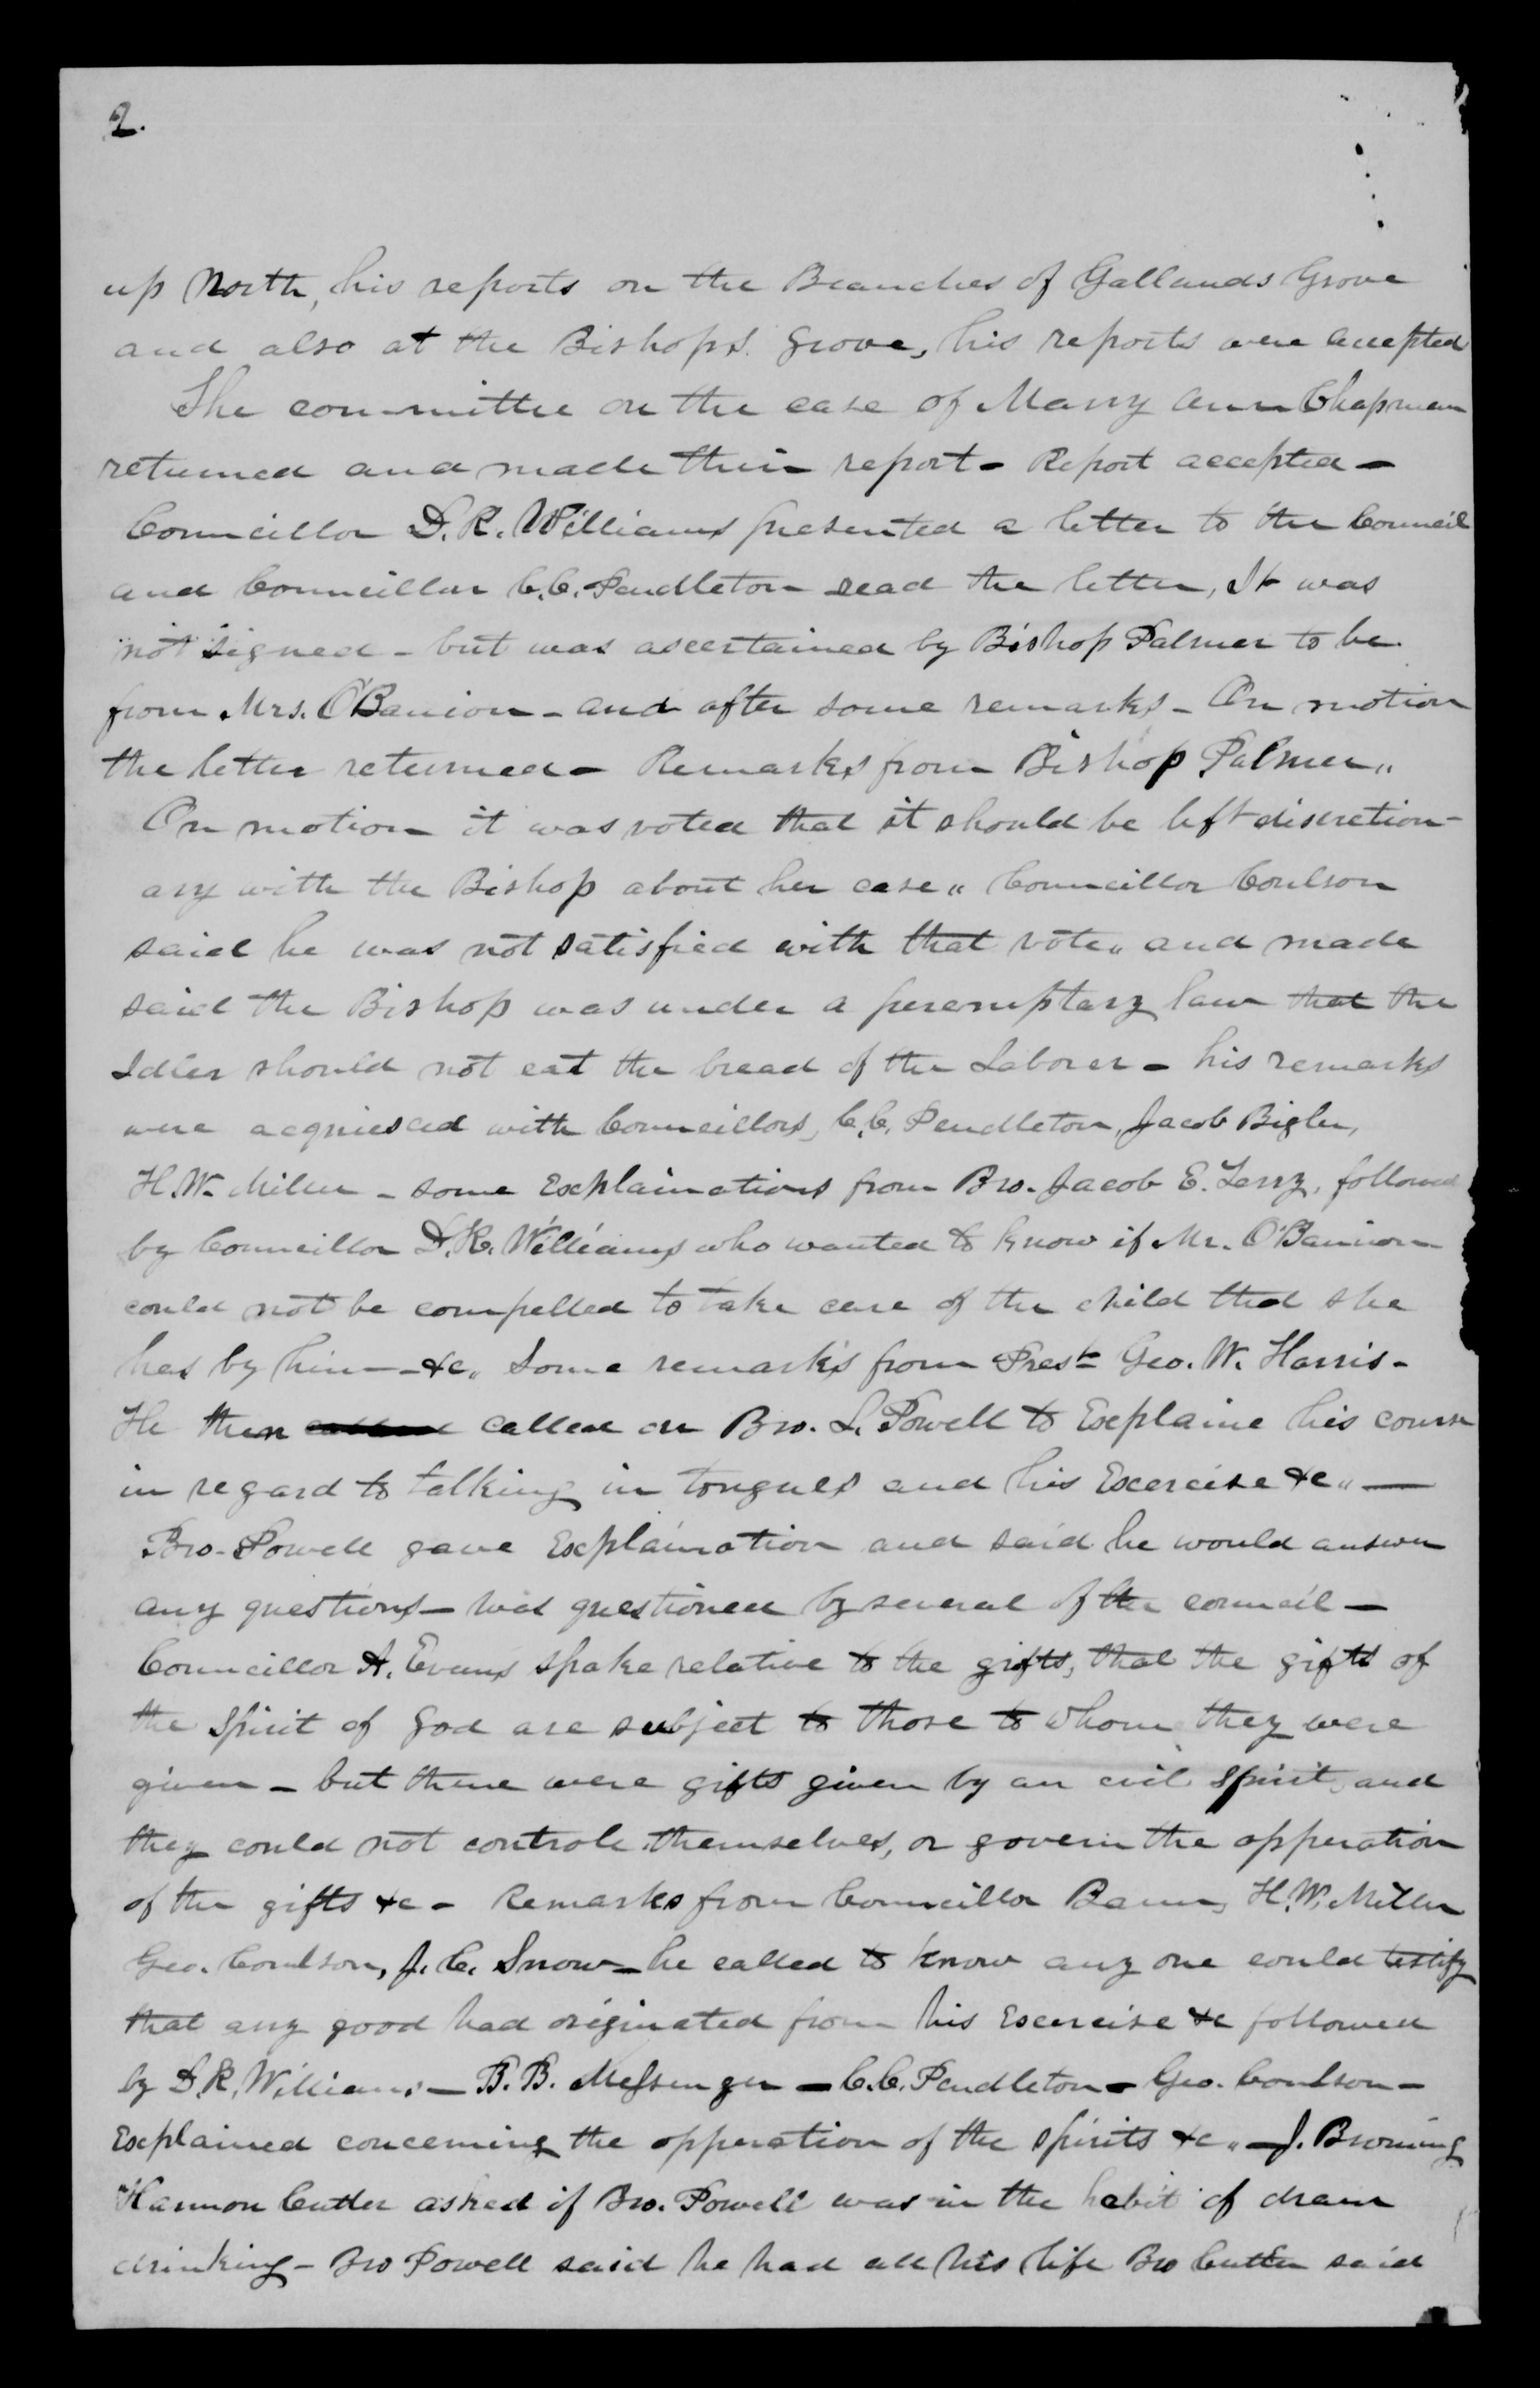 2.
up North, his reports on the Branches of Gallands Grove
and also at the Bishops Grove, his reports were accepted
The committee on the case of Marry Ann Chapman
returned and made their report - Report accepted -
Councillor D. R. Williams presented a letter to the Council
and Councillor C. C. Pendleton read the letter, It was
not signed - but was ascertained by Bishop Palmer to be
from Mrs. O'Banion - and after some remarks - On motion
the letter returned - Remarks from Bishop Palmer„
On motion it was voted that it should be left discretion-
ary with the Bishop about her case„ Councillor Coulson
said he was not satisfied with that vote„ and made
said the Bishop was under a peremptary law that the
Idler should not eat the bread of the Laborer - his remarks
were acquiesced with Councillors, C. C. Pendleton, Jacob Bigler,
H. W. Miller - some Explainations from Bro. Jacob E. Terry, followed
by Councillor D. R. Williams who wanted to know if Mr. O'Bannion
could not be compelled to take care of the child that she
has by him - &c„ Some remarks from Prest Geo. W. Harris -
He then called on Bro. L. Powell to Explaine his course
in regard to talking in tongues and his Excercise &c„ —
Bro. Powell gave Explaination and said he would answer
any questions - was questioned by several of the council -
Councillor A. Evans spake relative to the gifts, that the gifts of
the Spirit of God are subject to those to whom they were
given - but there were gifts given by an evil spirit, and
they could not controle themselves, or govern the opperation
of the gifts &c - Remarks from Councillor H. W. Miller
Geo. Coulson, J. C. Snow - he called to know any one could testify
that any good had originated from his Excercise &c followed
by D. R. Williams - B. B. Messenger - C. C. Pendleton - Geo. Coulson -
Explained concerning the opperation of the spirits &c„ - J. Browning
Harmon Cutler asked if Bro. Powell was in the habit of dram
drinking - Bro Powell said he had all his life Bro Cutler said